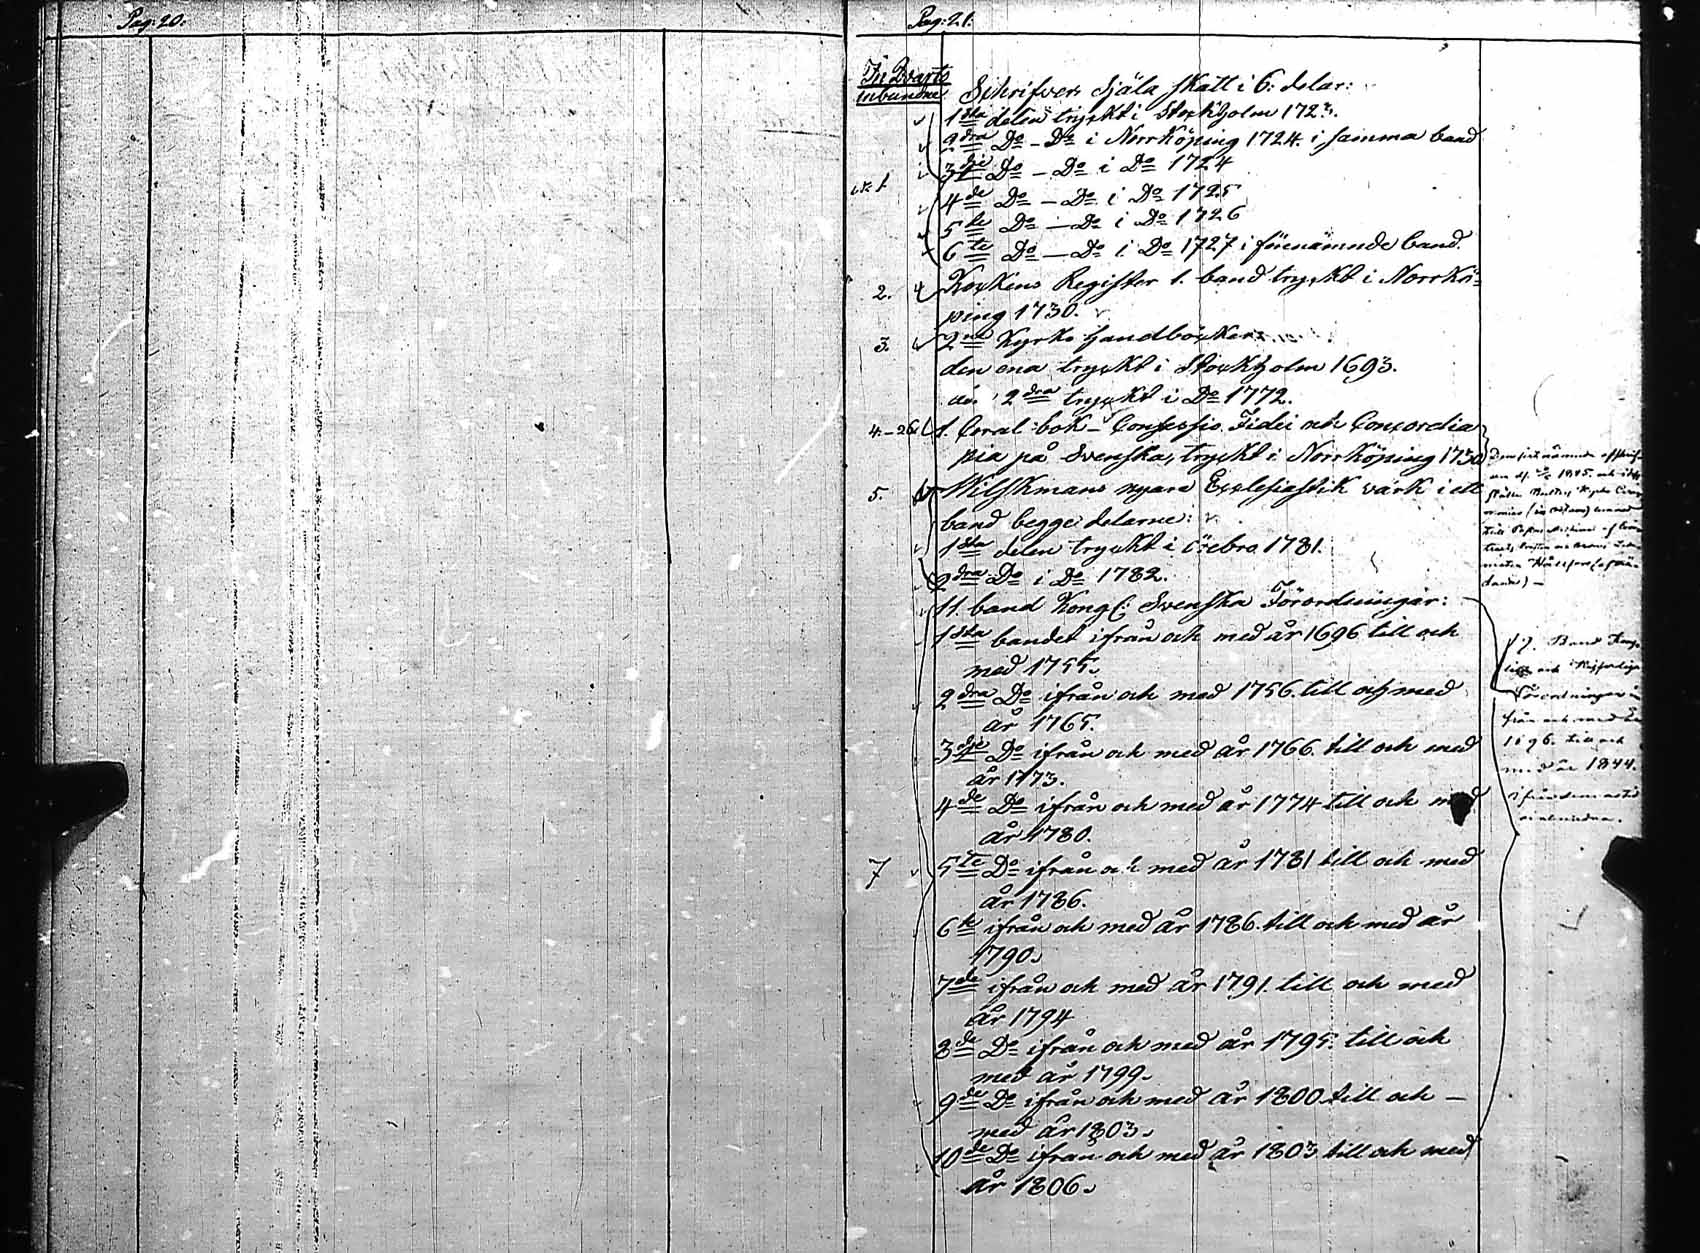 Pag: 20.
Pag: 21.
In Quarto
inbundne
Schrifvers Själa skatt i 6. delar:
1sta delen tryckt i Stockholm 1723.
2dra Do - Do i Norrköping 1724. i samma band
3dje Do - Do i Do 1724
N: 1
4de Do - Do i Do 1725
5te Do - Do i Do 1726
6te Do - Do i Do 1727 i förenämnde band.
2. Register 1. band tryckt i Norrkö=
ping 1730.
3. 2ne Kyrko Handböcker
den ena tryckt i Stockholm 1693.
2dra tryckt i Do 1772.
4.-26 1. Coral-bok - Confessio Fidei och Concordia
pia på Svenska, tryckt i Norrköping 1730
5. Wilskmans nyare Ecclesiastik värk i ett
band begge delarne:
1sta delen tryckt i Örebro 1781.
2dra Do i Do 1782.
11. band Kongl: Svenska Förordningar:
1sta bandet ifrån och med år 1696 till och
med 1755.
2dra Do ifrån och med 1756. till och med
år 1765.
3dje Do ifrån och med år 1766. till och med
år 1773.
4de Do ifrån och med år 1774 till och med
år 1780.
7 5te Do ifrån och med år 1781 till och med
år 1786.
6te ifrån och med år 1786. till och med år
1790.
7de ifrån och med år 1791. till och med
år 1794
8de Do ifrån och med år 1795. till och
med år 1799.
9de Do ifrån och med år 1800 till och -
med år 1803.
10de Do ifrån och med år 1803 till och med
år 1806.
1845. och
17. Band
och
Förordningar i
från och med År
1696. till och
med år 1844.